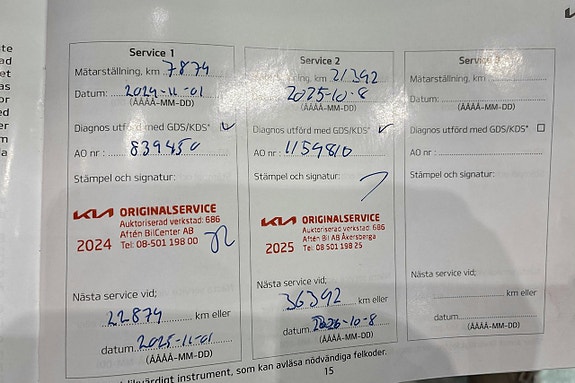 Service 1
Mätarställning, km 7879
Datum: 2024-11-01
(ÅÅÅÅ-MM-DD)
Diagnos utförd med GDS/KDS*
AO nr: 839450
Stämpel och signatur:
KIA ORIGINALSERVICE
Auktoriserad verkstad: 686
Aftén BilCenter AB
2024 Tel: 08-501 198 00
Nästa service vid;
22879 km eller
datum 2025-11-01
(ÅÅÅÅ-MM-DD)
Service 2
Mätarställning, km 21392
Datum: 2025-10-8
(ÅÅÅÅ-MM-DD)
Diagnos utförd med GDS/KDS*
AO nr: 1159810
Stämpel och signatur:
KIA ORIGINALSERVICE
Auktoriserad verkstad: 686
Aftén Bil AB Åkersberga
2025 Tel: 08 501 198 25
Nästa service vid;
36392 km eller
datum 2026-10-8
(ÅÅÅÅ-MM-DD)
Service
Mätarställning, km
Datum:
(ÅÅÅÅ-MM-DD)
Diagnos utförd med GDS/KDS*
AO nr:
Stämpel och signatur:
Nästa service vid;
km eller
datum
(ÅÅÅÅ-MM-DD)
likvärdigt instrument, som kan avläsa nödvändiga felkoder.
15